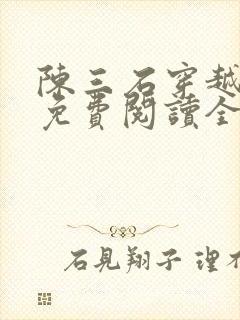 陳三石穿越
免費閱讀全
石見翔子 理不